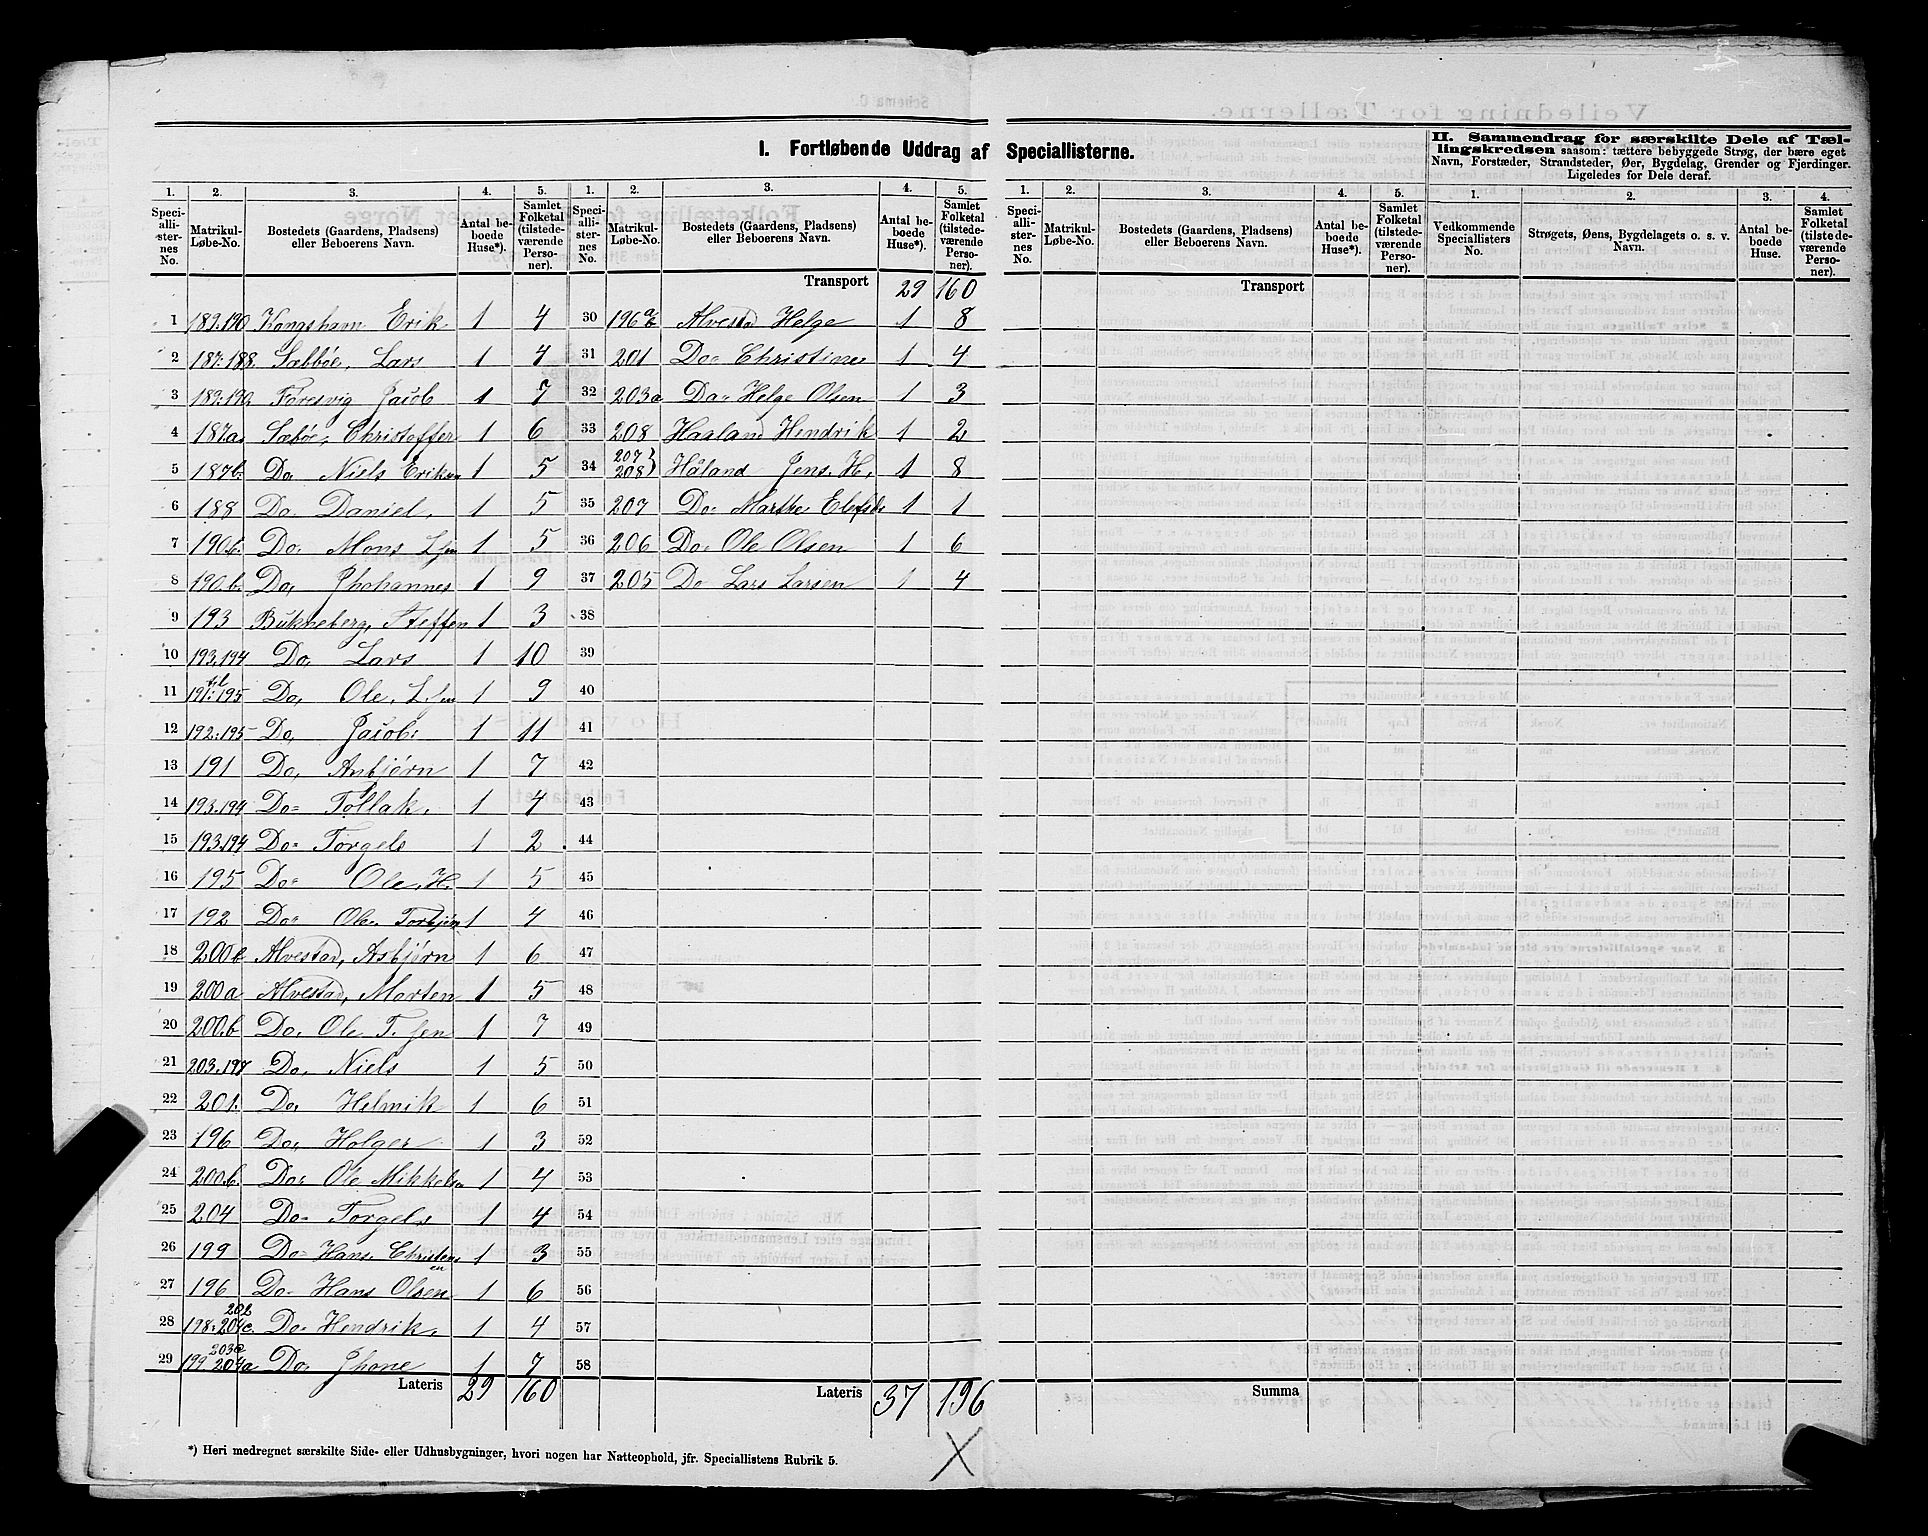 I. Fortløbende Uddrag af Speciallisterne.
II. Sammendrag for særskilte Dele af Tællingskredsen saasom: tættere bebyggede Strøg, der bære eget Navn, Forstæder, Strandsteder, Øer, Bygdelag, Grender og Fjerdinger. Ligeledes for Dele deraf.
1. 2. 3. 4. 5. 1. 2. 3. 4. 5. 1. 2. 3. 4. 5. 1. 2. 3. 4.
Speciallisternes No. Matrikul-Løbe-No. Bostedets (Gaardens, Pladsens) eller Beboerens Navn. Antal beboede Huse*). Samlet Folketal (tilstedeværende Personer).
Speciallisternes No. Matrikul-Løbe-No. Bostedets (Gaardens, Pladsens) eller Beboerens Navn. Antal beboede Huse*). Samlet Folketal (tilstedeværende Personer).
Speciallisternes No. Matrikul-Løbe-No. Bostedets (Gaardens, Pladsens) eller Beboerens Navn. Antal beboede Huse*). Samlet Folketal (tilstedeværende Personer).
Vedkommende Speciallisters No. Strøgets, Øens, Bygdelagets o. s. v. Navn. Antal beboede Huse. Samlet Folketal (tilstedeværende Personer).
1 189.190 Kongsham Erik 1 4
2 187.188. Sæbböe, Lars 1 4
3 189.190. Föresvig Jacob 1 7
4 187a. Sæböe, Christoffer 1 6
5 187b. Do. Niels 1 5
6 188 Do. Daniel. 1 5
7 190.b. Do. Mons 1 5
8 190.b. Do. Jhohannes 1 9
9 193 Bukneberg, Steffen 1 3
10 193.194 Do, Lars 1 10
11 191. 195 Do, Ole. 1 9
12 192.195 Do, Jacob. 1 11
13 191 Do, Asbjørn 1 7
14 193.194 Do= Tollak. 1 4
15 193.194 Do= Torgels 1 2
16 195 Do= Ole. H. 1 5
17 192 Do= Ole. 1 4
18 200 Alvestad, Asbjørn 1 6
19 200a Alvestad, Morten 1 5
20 200.b Do, Ole T. 1 7
21 203.197 Do. Niels 1 5
22 201. Do, Helmik 1 6
23 196 Do, Holger 1 3
24 200.b. Do= Ole Mikkelsen 1 4
25 204 Do= Torgels 1 4
26 199 Do= Hans. 1 3
27 196 Do= Hans Olsen 1 6
28 198. 204c. Do= Hendrik. 1 4
29 199. 204a Do, Jhone 1 7
Lateris 29 160
Transport 29 160
30 196 Alvestad Helge 1 8
31 201 Do= Christine 1 4
32 203a Do= Helge Olsen 1 3
33 208 Haaland Hendrik 1 2
34 207 208 Håland Jens. H. 1 8
35 207 Do= Marthe 1 1
36 206 Do= Ole Olsen 1 6
37 205 Do Lars Larsen 1 4
38
39
40
41
42
43
44
45
46
47
48
49
50
51
52
53
54
55
56
57
58
Lateris 37 196
Transport
Summa
*) Heri medregnet særskilte Side- eller Udhusbygninger, hvori nogen har Natteophold, jfr. Speciallistens Rubrik 5.
X